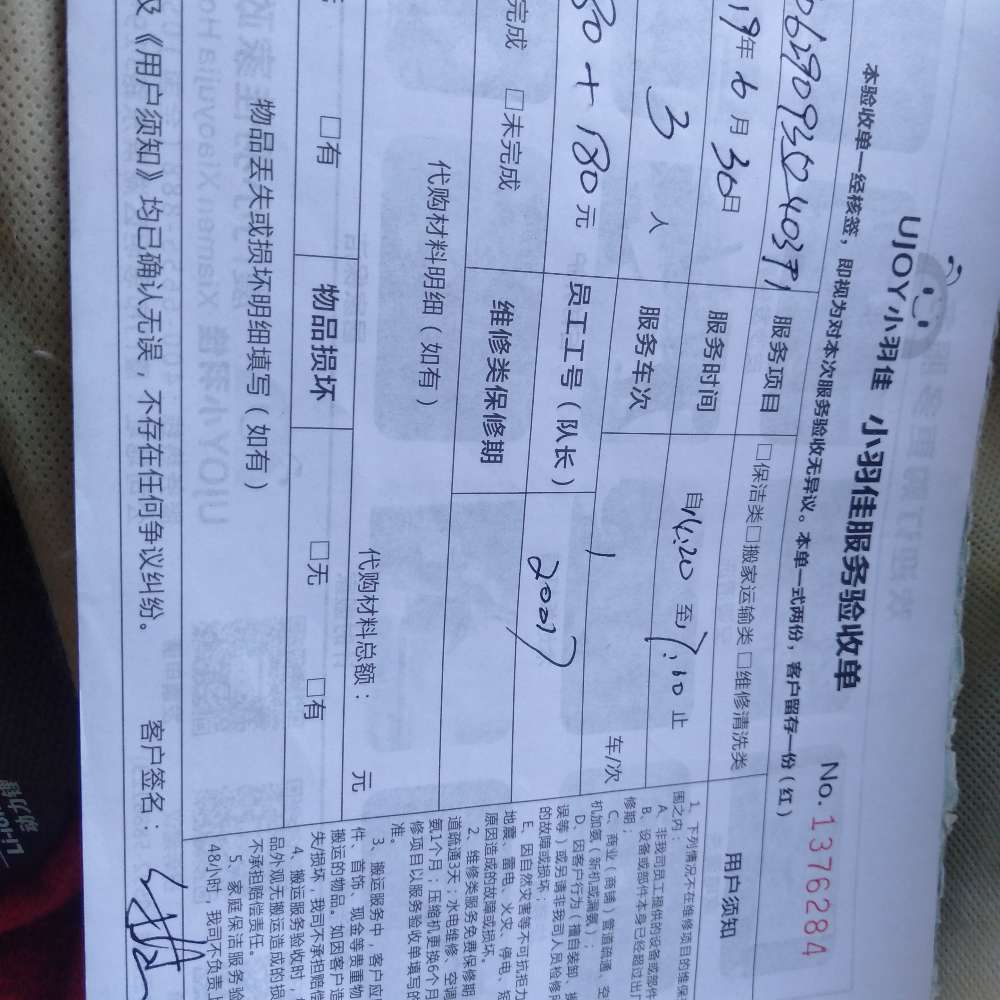 UJOY小羽佳 小羽佳服务验收单 No.1376284
本验收单一经核签，即视为对本次服务验收无异议。本单一式两份，客户留存一份(红)
服务项目 □保洁类□搬家运输类 □维修清洗类
用户须知
19年6月30日 服务时间 自 至 止
3 人 服务车次 1 车/次
80+180元 员工工号(队长) 2007
完成 □未完成 维修类保修期
代购材料明细(如有) 代购材料总额: 元
□有 物品损坏 □无 □有
物品丢失或损坏明细填写(如有)
及《用户须知》均已确认无误，不存在任何争议纠纷。 客户签名:
1、下列情况不在维修项目的维保
围之内:
A、非我司员工提供的设备或部件
B、设备或部件本身已经超过出厂
修期;
C、商业(商铺)管道疏通、空
机加氨(新机或漏氨);
D、因客户行为(擅自装卸、
误等)或另请非我司人员检修
的故障或损坏;
E、因自然灾害等不可抗拒力
地震、雷电、火灾、停电、短
原因造成的故障或损坏。
2、维修类服务免费保修期
道疏通3天;水电维修、空调
氨1个月;压缩机更换6个月
修项目以服务验收单填写的
准。
3、搬运服务中，客户应
件、首饰、现金等贵重物
搬运的物品。如因客户造
失/损坏，我司不承担赔偿
4、搬运服务验收时，
品外观无搬运造成的损
不承担赔偿责任。
5、家庭保洁服务验
48小时，我司不负责上
Li-ion